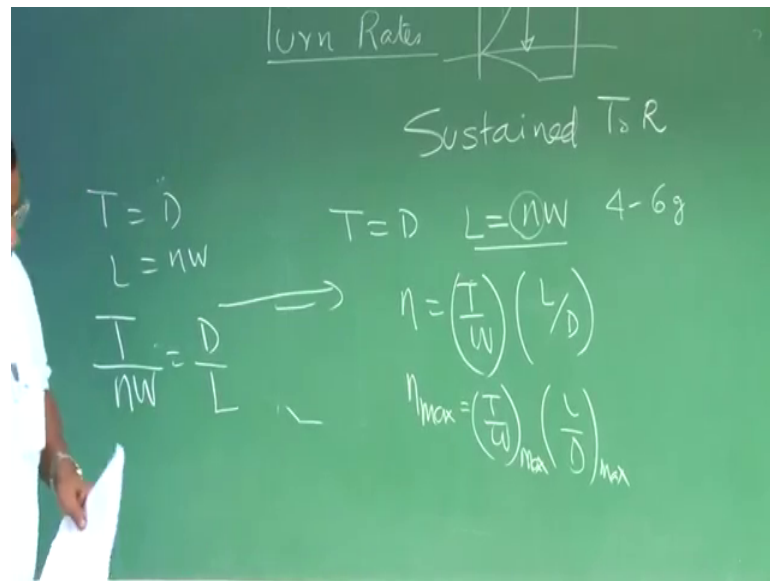 Turn Rates
Sustained ToR
T = D
L = nW
T/nW = D/L
T = D L = nW 4-6g
n = (T/W) (L/D)
n max = (T/W) max (L/D) max